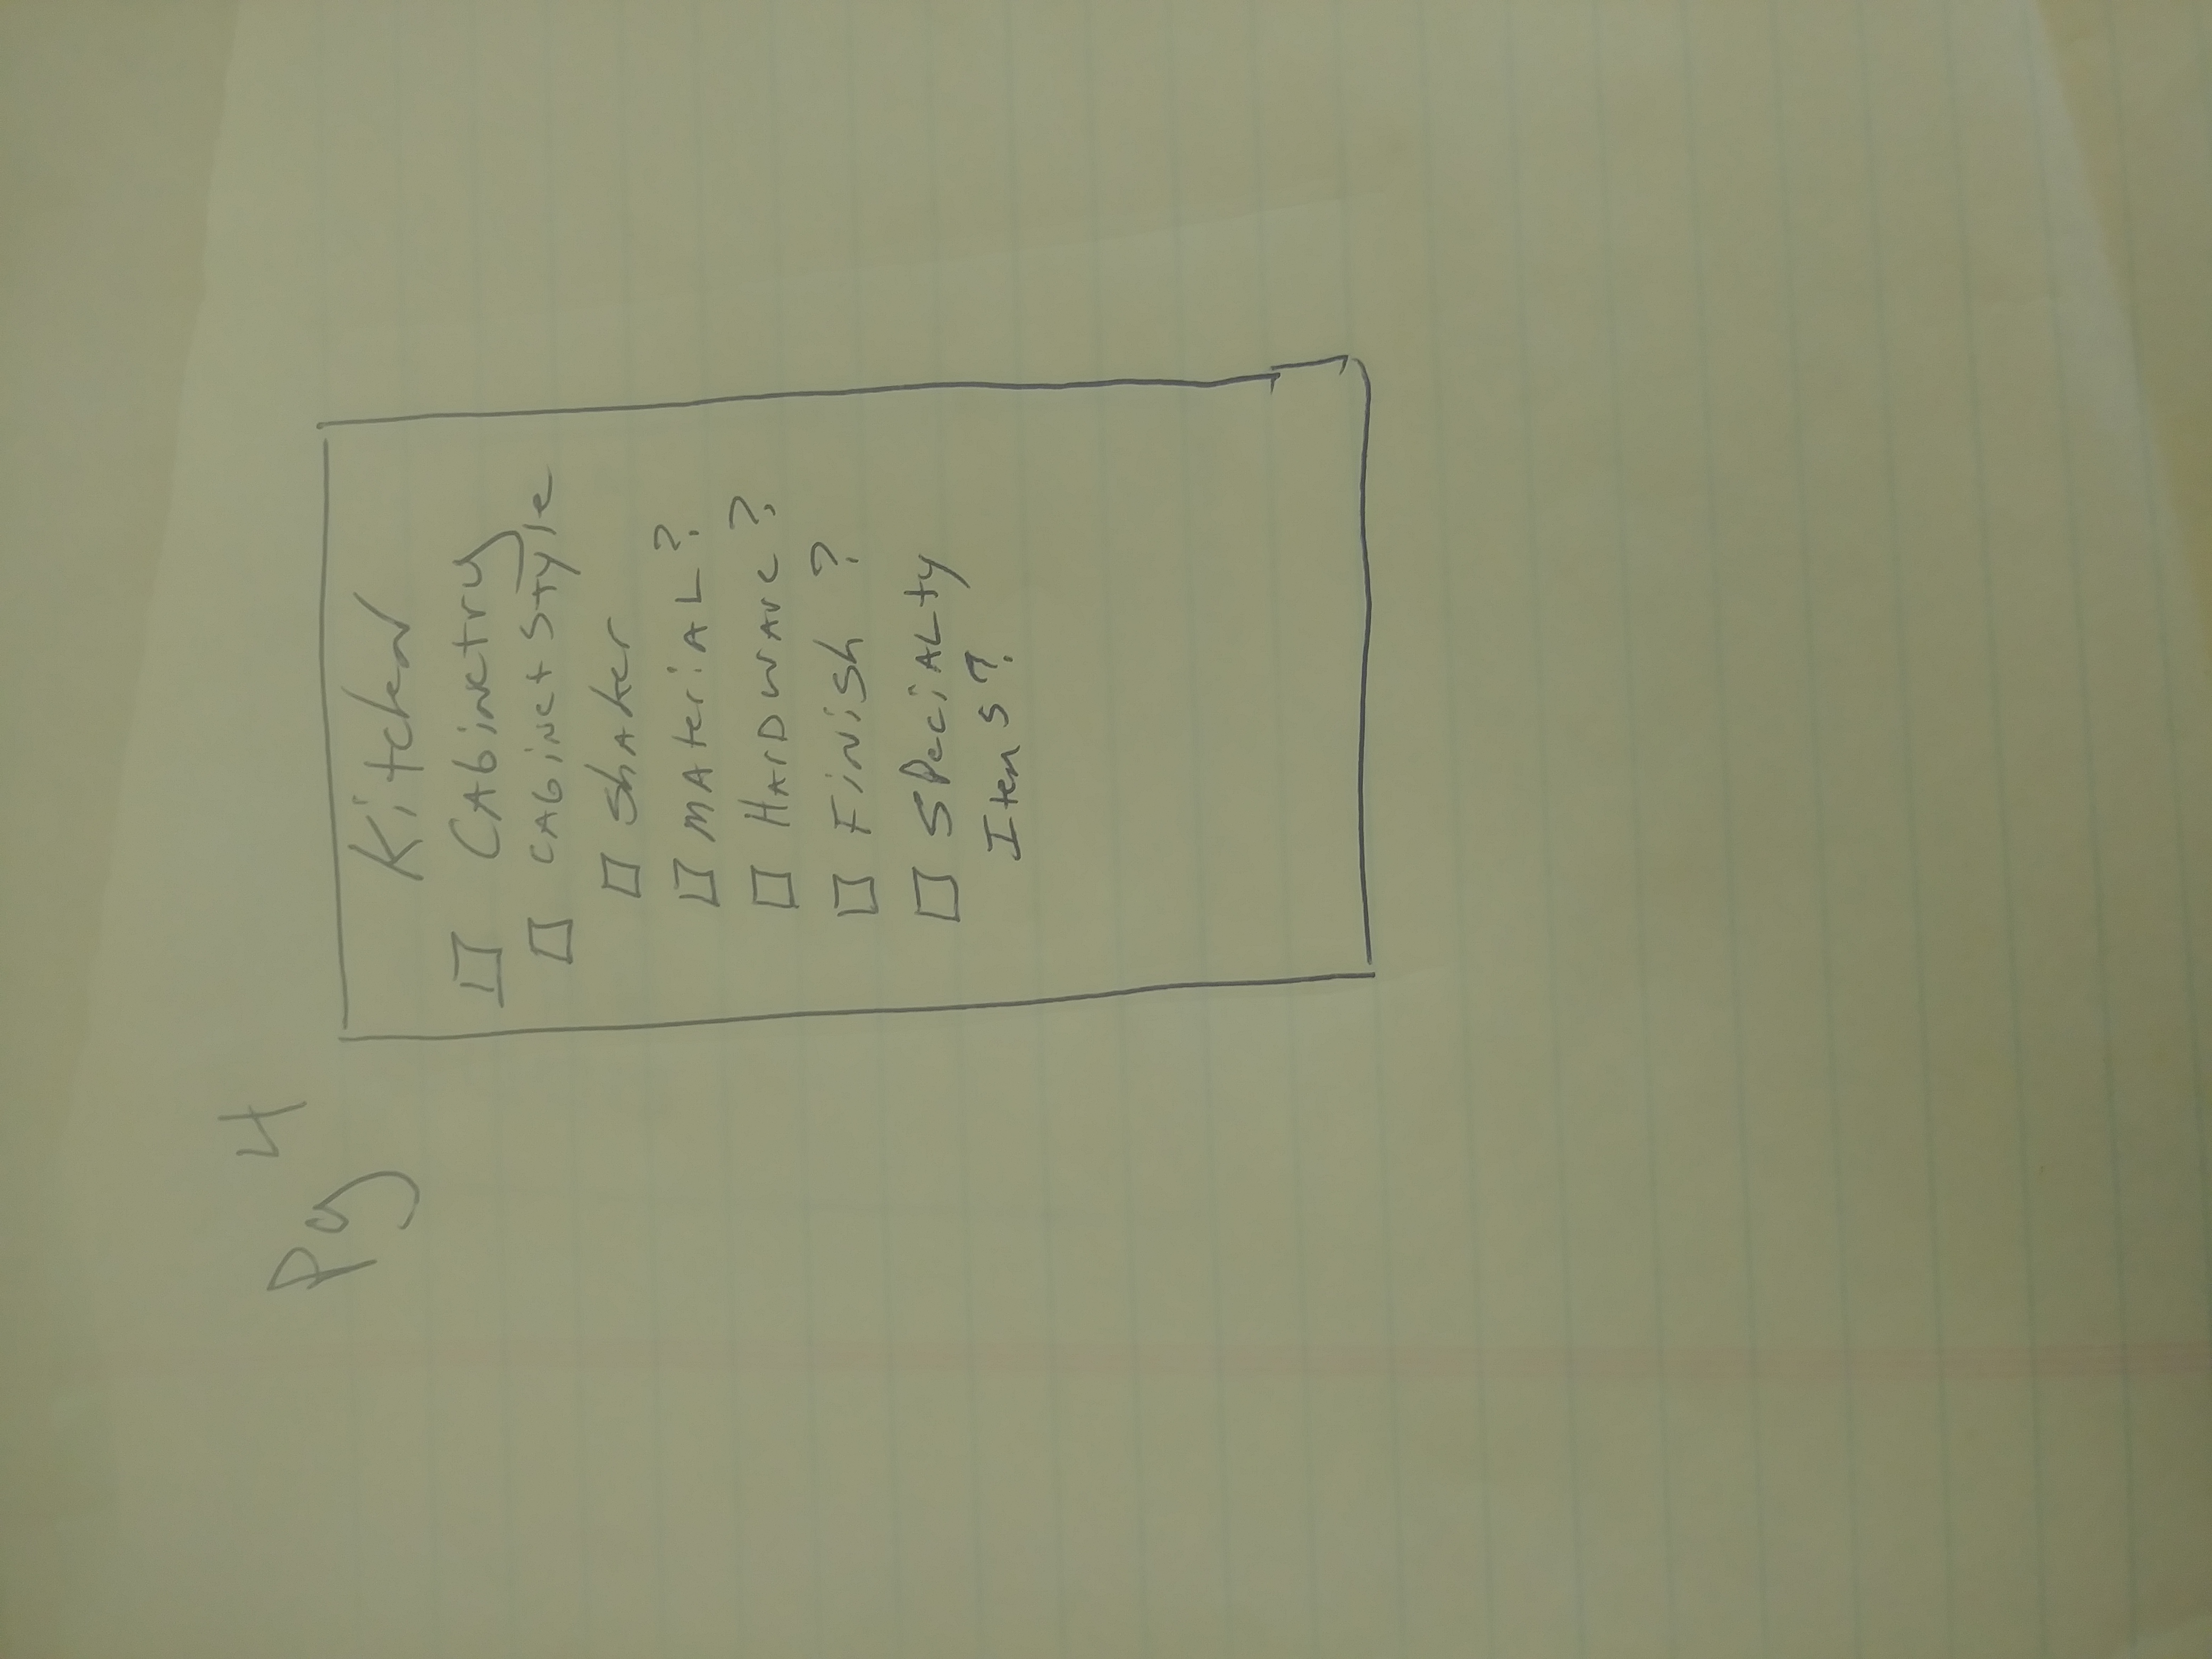 Pg 4
Kitchen
Cabinetry
Cabinet Style
Shaker
Material?
Hardware?
Finish ?
Specialty
Items?